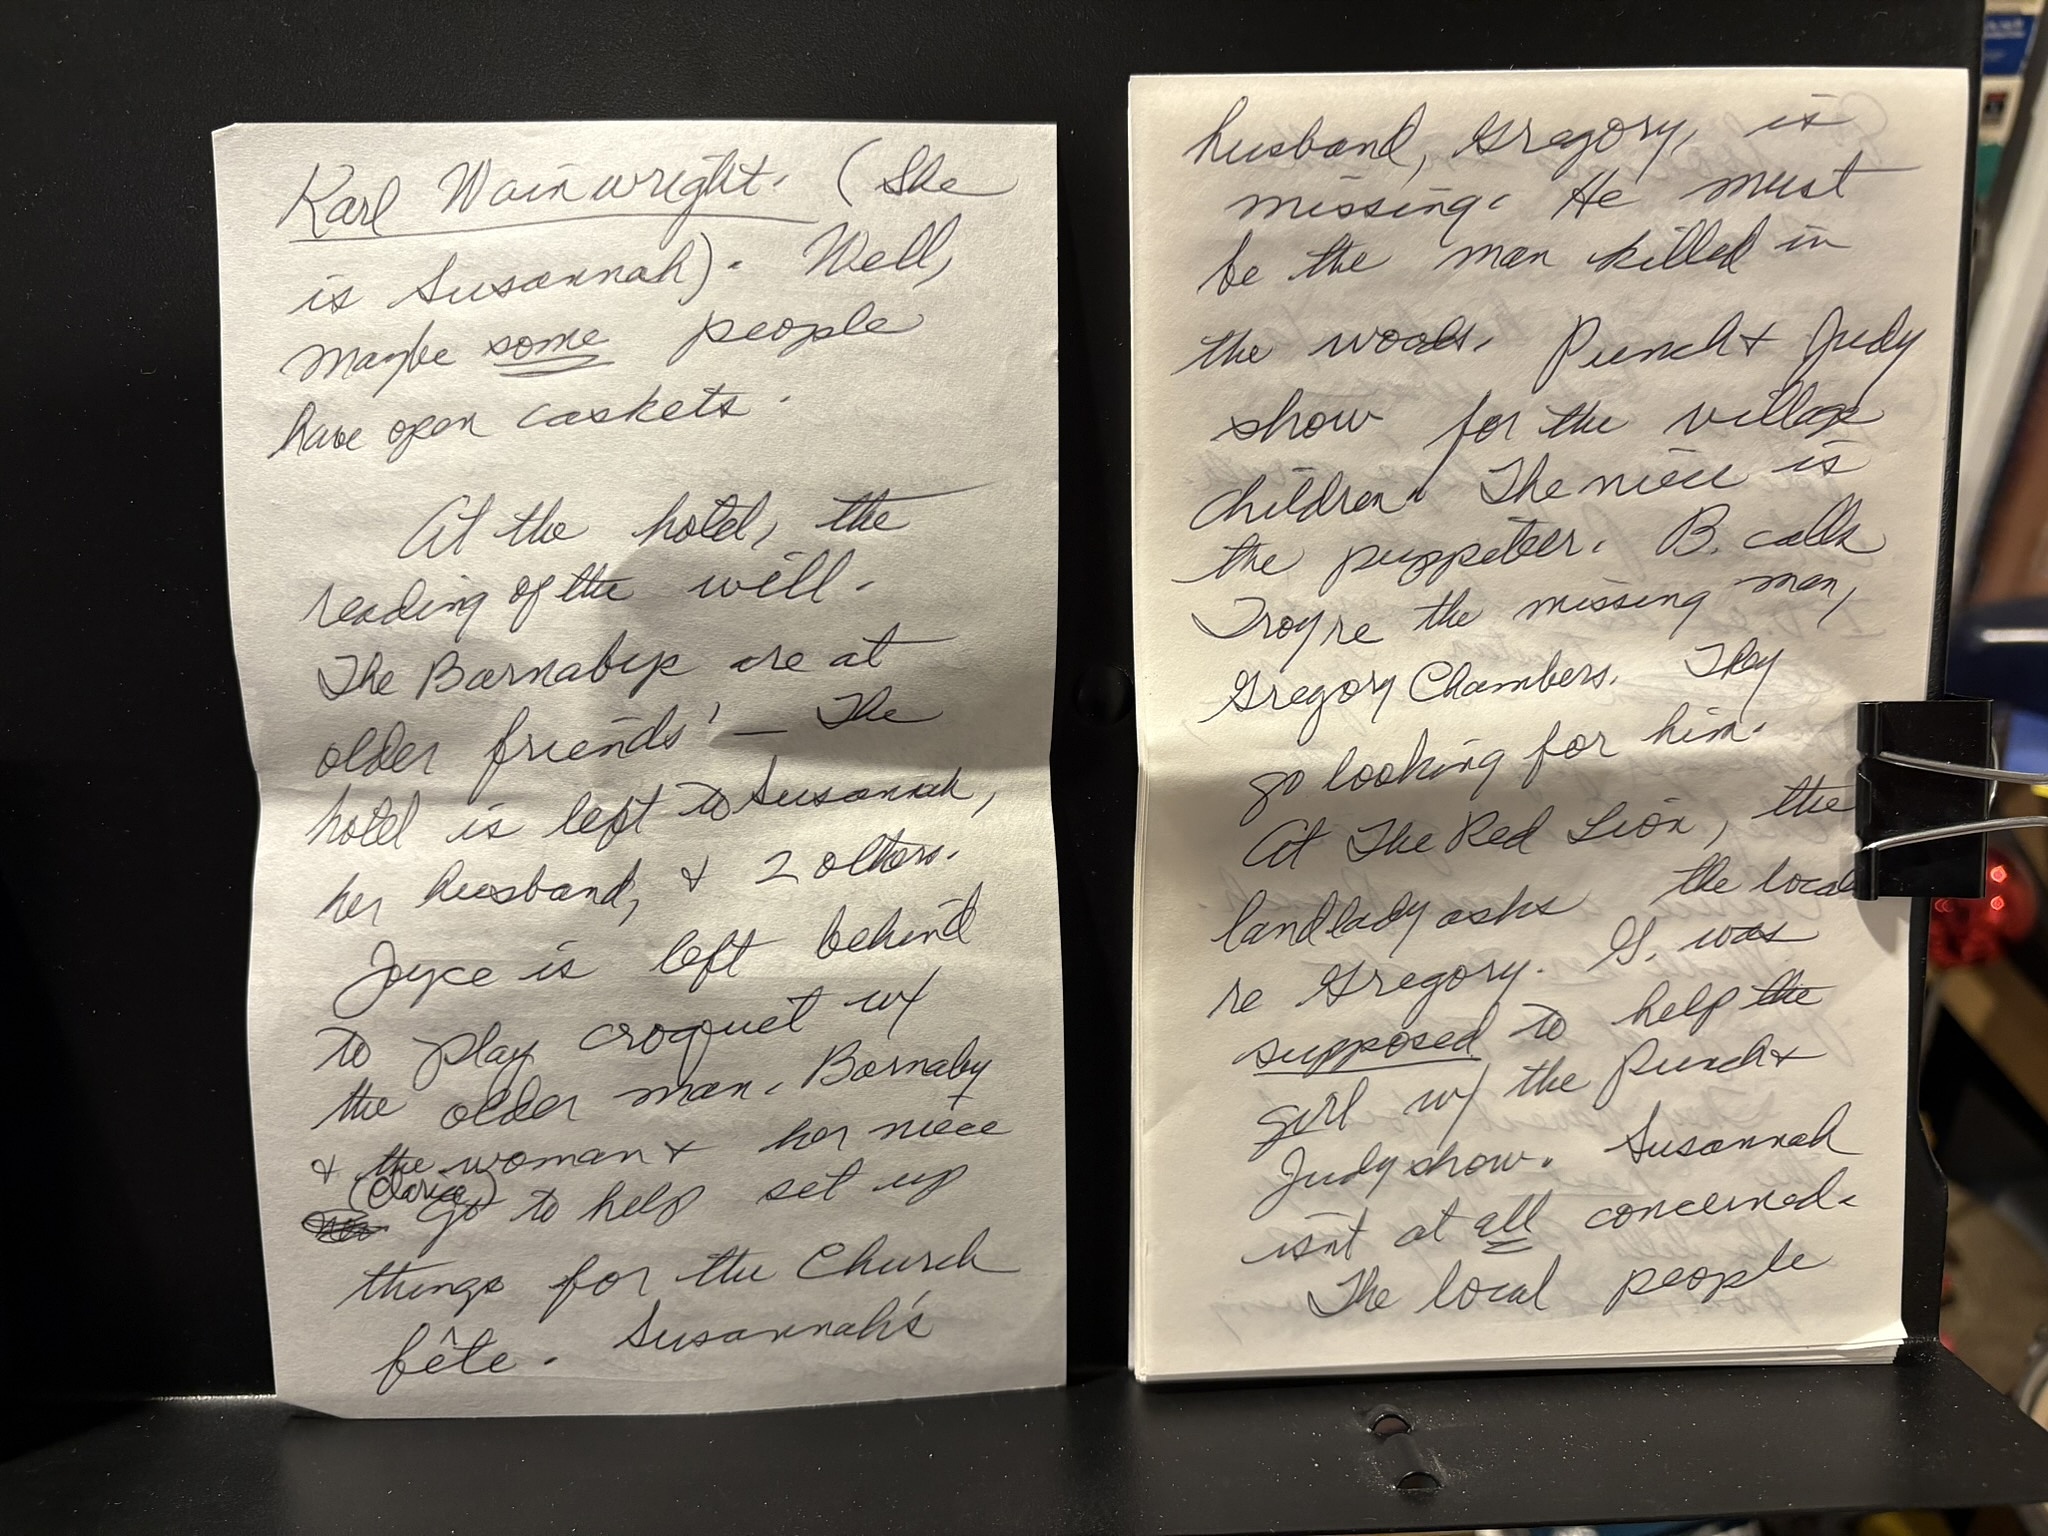 Karl Wainwright. (She
is Susannah). Well,
maybe some people
have open caskets.
At the hotel, the
reading of the will.
The Barnabys are at
older friends' — The
hotel is left to Susannah,
her husband, & 2 others.
Joyce is left behind
to play croquet w/
the older man. Barnaby
& the woman & her niece
(Clarice)
go to help set up
things for the Church
fête. Susannah's
husband, Gregory, is
missing. He must
be the man killed in
the woods. Punch & Judy
show for the village
children. The niece is
the puppeteer. B. calls
Troy re the missing man,
Gregory Chambers. They
go looking for him.
At The Red Lion, the
landlady asks the local
re Gregory. G. was
supposed to help the
girl w/ the Punch &
Judy show. Susannah
isn't at all concerned.
The local people